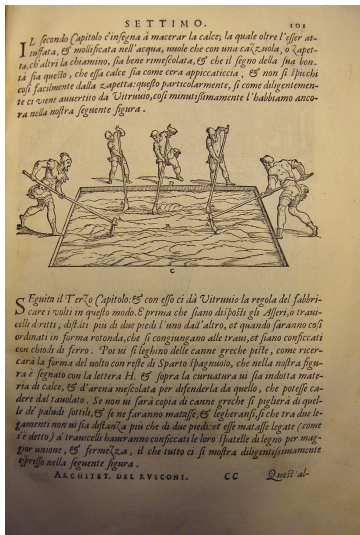 SETTIMO. 101
IL secondo Capitolo c'insegna à macerar la calce; la quale oltre l'esser at-
tuffata, & mollificata nell'acqua, uuole che con una cazzuola, o zapet-
ta, ch'altri la chiamino, sia bene rimescolata, & che il segno della sua bon-
tà sia questo, che essa calce sia come cera appiccaticcia, & non si spicchi
così facilmente dalla zapetta: questo particolarmente, sì come diligentemen-
te ci viene auuertito da Vitruuio, così minutissimamente l'habbiamo anco-
ra nella nostra seguente figura.
D
C
SEguita il Terzo Capitolo: & con esso ci dà Vitruuio la regola del fabbri-
care i volti in questo modo. E prima che siano disposti gli Asseri, o traui-
celli dritti, distāti più di due piedi l'uno dall'altro, et quando saranno così
ordinati in forma rotonda, che si congiungano alle traui, et siano conficcati
con chiodi di ferro. Poi ui si leghino delle canne greche piste, come ricer-
carà la forma del uolto con reste di Sparto spagnuolo, che nella nostra figu-
ra è segnato con la lettera H. & sopra la curuatura ui sia indotta mate-
ria di calce, & d'arena mescolata per difenderla da quello, che potesse ca-
dere dal tauolato. Se non ui sarà copia di canne greche si piglierà di quel-
le de' paludi sottili, & se ne faranno matasse, & legheransi, sì che tra due le-
gamenti non ui sia distanza più che di due piedi: et esse matasse legate (come
s'è detto) à trauicelli haueranno conficcati le loro spatelle di legno per mag-
gior unione, & fermezza, il che tutto ci si mostra diligentissimamente
espresso nella seguente figura.
ARCHITET. DEL RVSCONI. CC Quest'al-